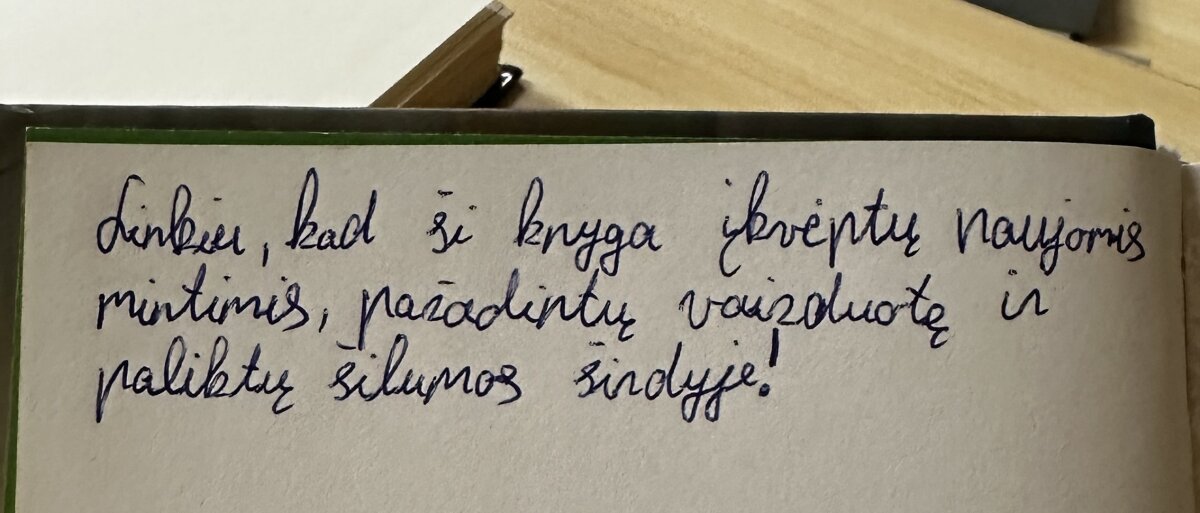 Linkiu, kad ši knyga įkvėptų naujomis
mintimis, pažadintų vaizduotę ir
paliktų šilumos širdyje!